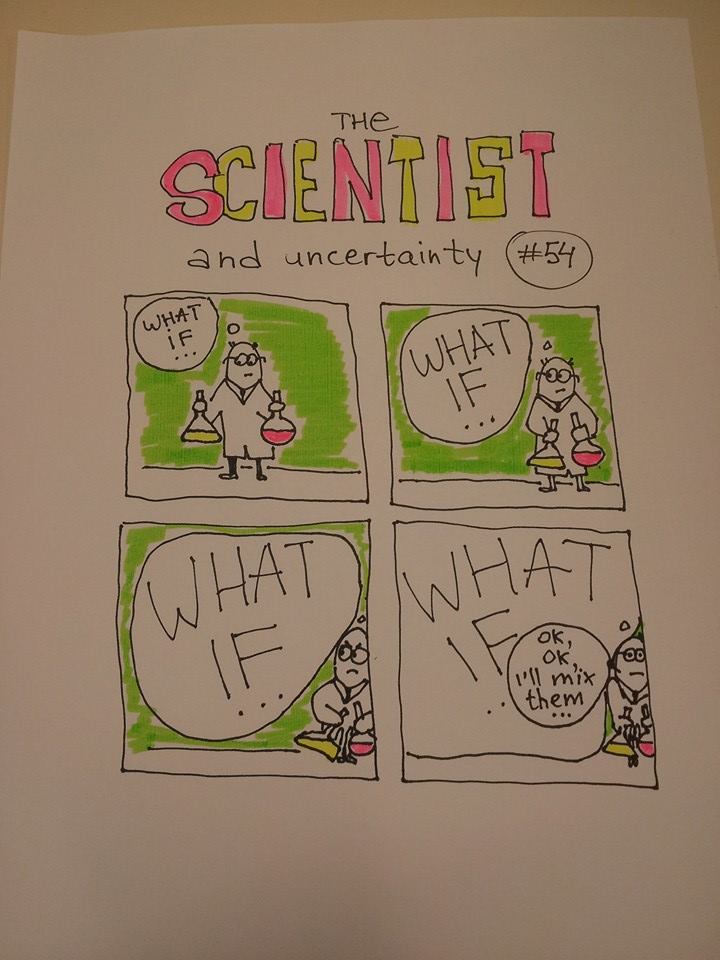 THE
SCIENTIST
and uncertainty #54
WHAT
iF
...
WHAT
IF
...
WHAT
IF
...
WHAT
IF
..
OK,
OK,
I'll mix
them
...